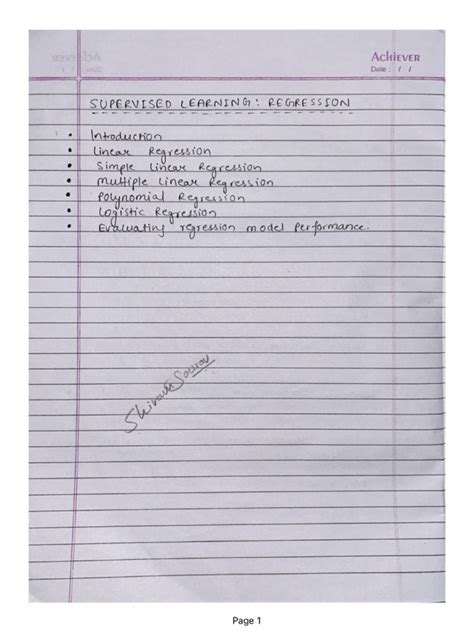 ACHIEVER
Date : / /
SUPERVISED LEARNING: REGRESSION
• Introduction
• Linear Regression
• Simple Linear Regression
• Multiple Linear Regression
• Polynomial Regression
• Logistic Regression
• Evaluating regression model performance.
Page 1